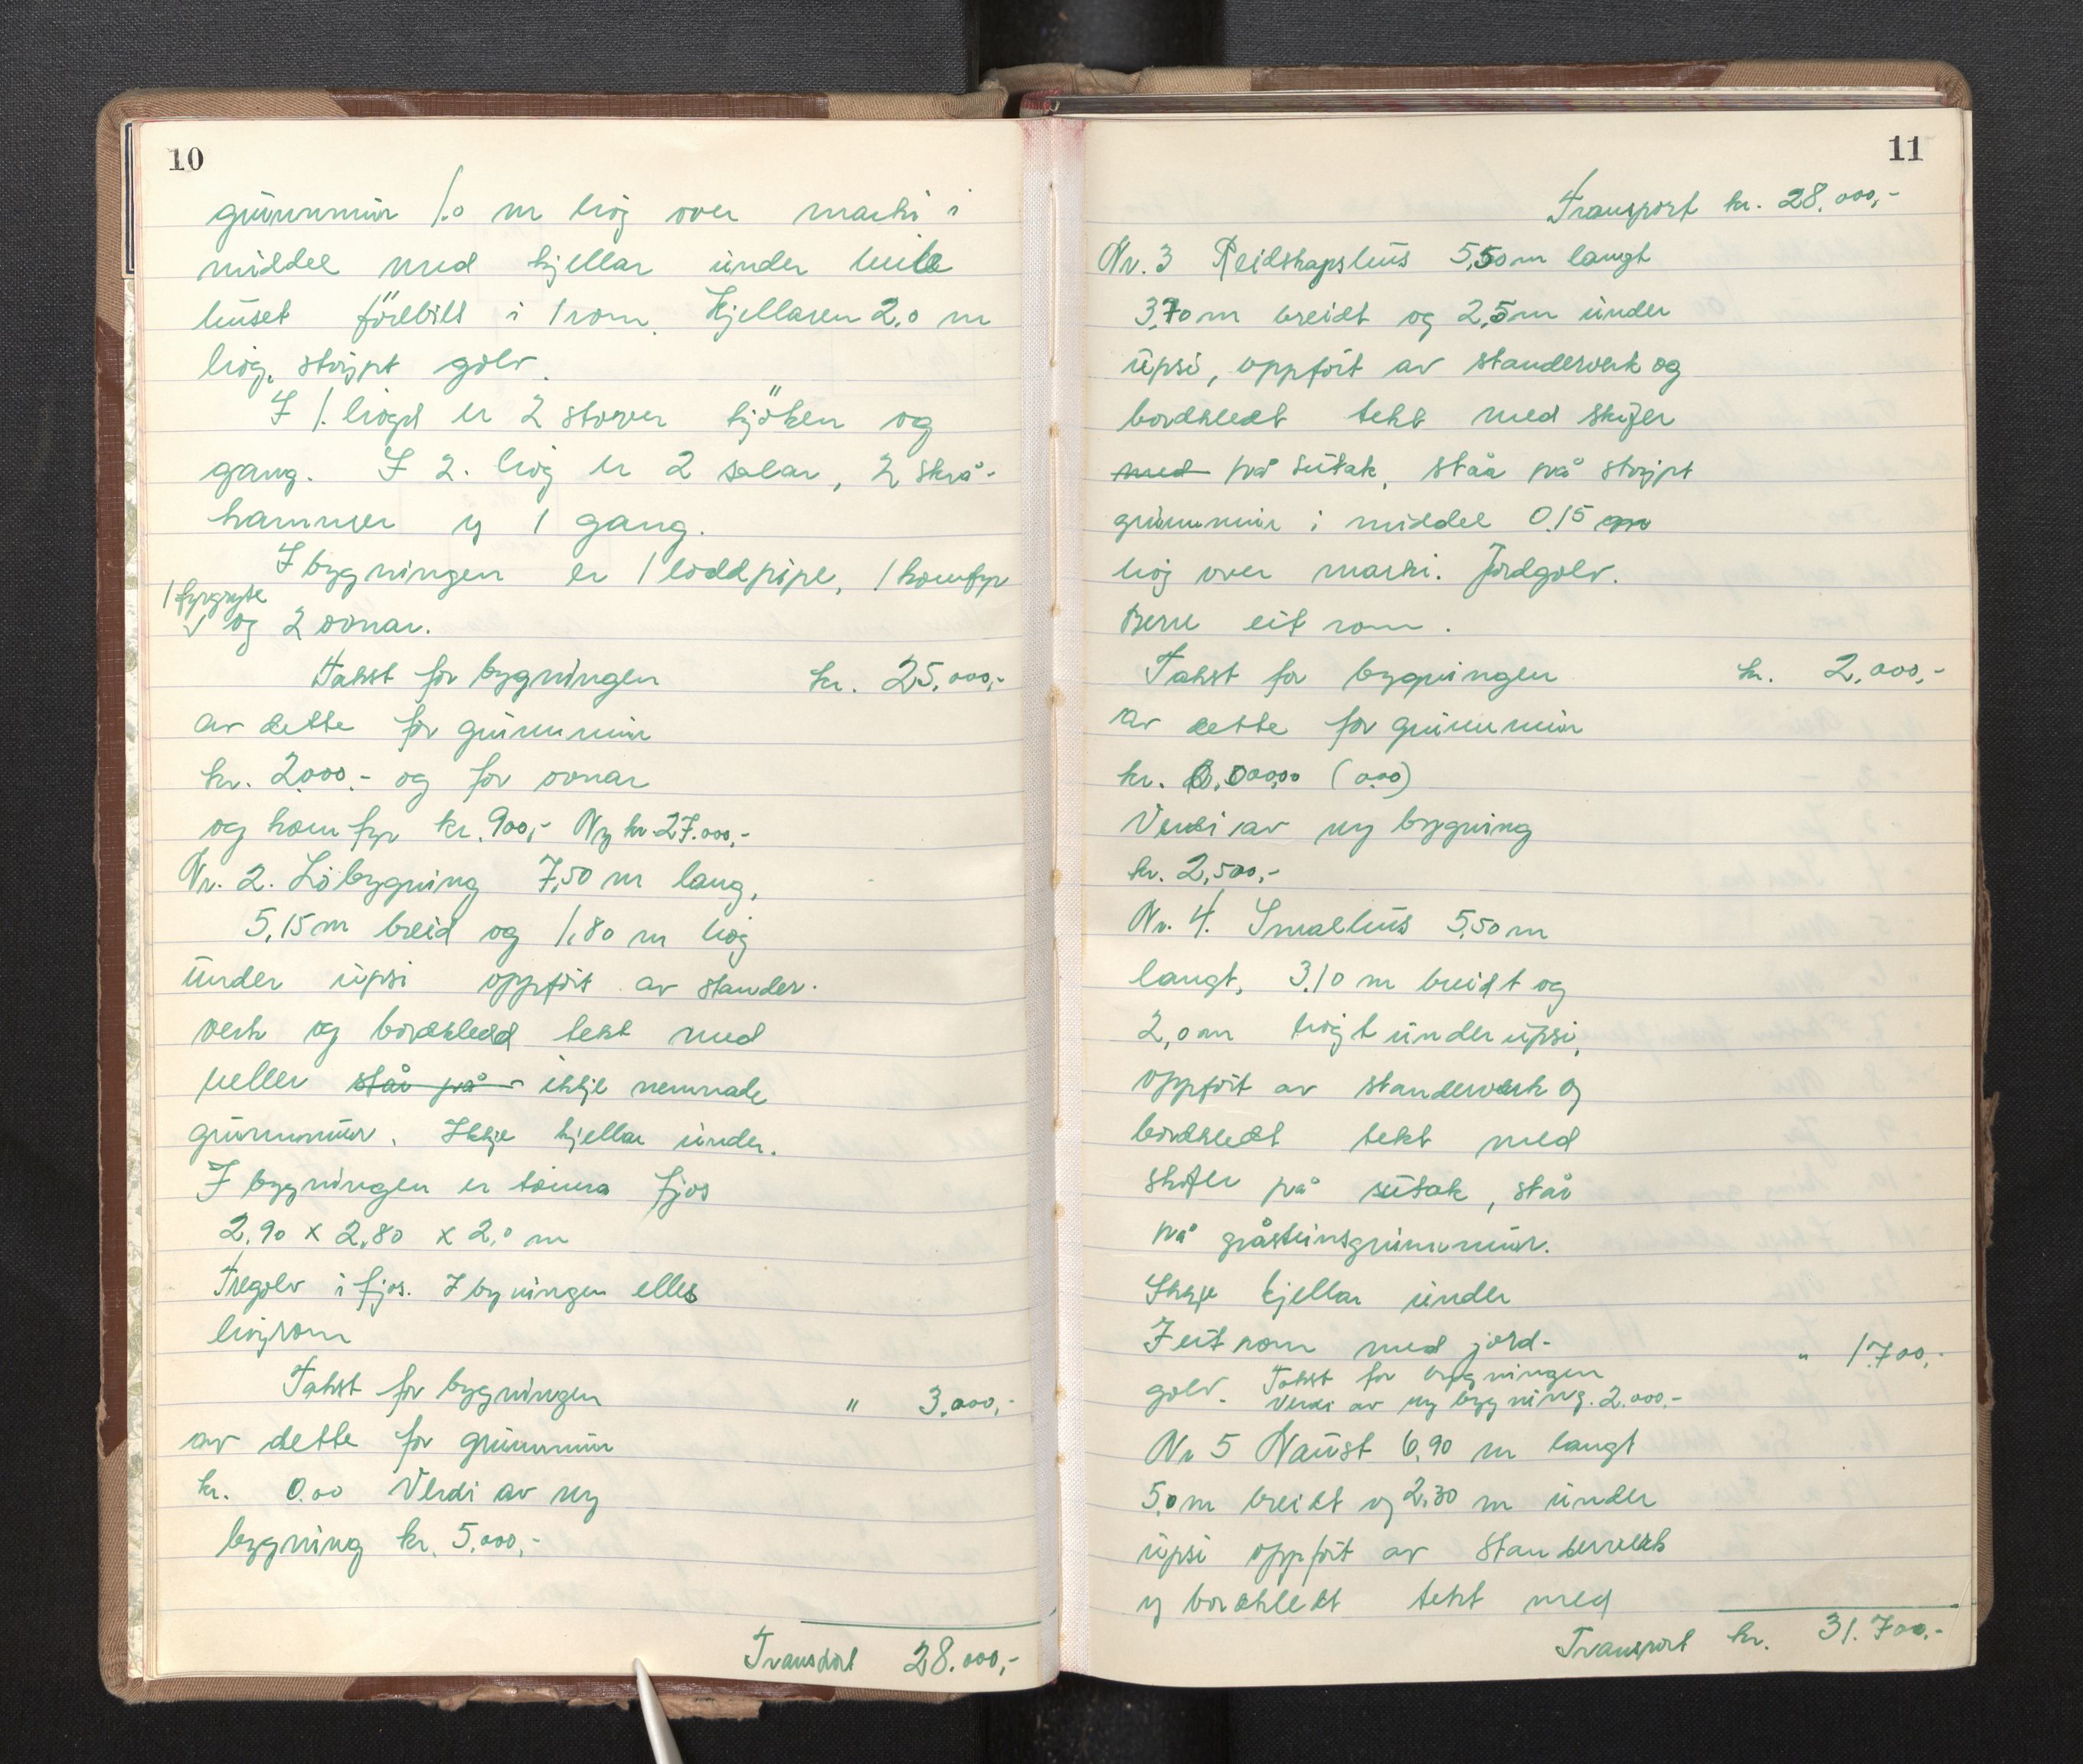 10
grunnmur 1.0 m høg over marki i
middel med kjellar under heile
huset fördelt i 1 rom. Kjellaren 2,0 m
høg, støypt golv.
I 1. høgd er 2 stover kjöken og
gang. I 2. høg er 2 salar, 2 skrå-
kammer og 1 gang.
I bygningen er 1 loddpipe, 1 komfyr
1 fyrgryte
og 2 ovnar.
Takst for bygningen kr. 25.000,-
av dette for grunnmur
kr. 2.000.- og for ovnar
og komfyr kr. 900,- Ny kr. 27.000,-
Nr. 2. Löbygning 7,50 m lang,
5,15 m breid og 1,80 m høg
under upsi oppført av stander-
verk og bordkledd tekt med
heller står på ikkje nemnade
grunnmur. Ikkje kjellar under.
I bygningen er tømra fjos
2,90 x 2,80 x 2,0 m
Tregolv i fjos. I bygningen elles
høyrom
Takst for bygningen " 3.000,-
av dette for grunnmur
kr. 0.00 Verdi av ny
bygning kr. 5.000,-
Transport 28.000,-
11
Transport kr. 28.000,-
Nr. 3 Reidskapshus 5,50 m langt
3,70 m breidt og 2,5 m under
upsi, oppført av standerverk og
bordkledt tekt med skifer
med på sutak, står på støypt
grunnmur i middel 0.15 m
høg over marki. Jordgolv.
Berre eit rom.
Takst for bygningen kr. 2.000,-
av dette for grunnmur
kr. 0,00 (000)
Verdi av ny bygning
kr. 2,500,-
Nr. 4. Smalhus 5,50 m
langt, 3.10 m breidt og
2,0 m høgt under upsi,
oppført av standerverk og
bordkledt tekt med
skifer på sutak, står
på gråsteinsgrunnmur.
Ikkje kjellar under
I eit rom med jord- " 1.700,-
golv. Takst for bygningen
Verdi av ny bygning. 2.000,-
Nr 5 Naust 6,90 m langt
5,0 m breidt og 2.30 m under
upsi oppført av standerverk
og bordkledt tekt med
Transport kr. 31.700,-